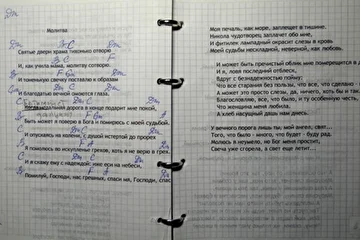 Dm
Молитва
Dm C Dm
Святые двери храма тихонько отворю
F C
И, как учила мама, молитву сотворю:
Gm Dm
И тоненькую свечку поставлю к образам
C Dm
И благодатью вечной омоются глаза.
в конце подарит мне покой,
Быть может я поверю в Бога и помирюсь с моей судьбой.
C Dm C Dm
И опускаясь на колени с душой истертой до прорех
Я помолюсь во искупленье грехов, хоть я не верю в грех.
C Dm C Dm
И я скажу ему с надеждой: мне еси на небеси,
Помилуй, Господи, нас грешных, спаси мя, Господи, спас
Моя печаль, как море, заплещет в тишине.
Никола чудотворец заплачет обо мне,
И фитилек лампадный окрасит слезы в кровь
Моей судьбы нескладной, неверной, как любовь.
И может быть пречистый облик мне померещится в
И я, ловя последний отблеск,
Вдруг с безнадежностью пойму;
Что все старания без пользы, что все, что сделано
А может это просто слезы, да, ничего, хоть бы и так
Благословляю, все, что было, и ту особенную честь,
Что женщина меня любила,
А хлеб насущный дашь нам днесь.
У вечного порога лишь ты, мой ангел, свет...
Того, что было - много, что будет - буду рад.
Молюсь я неумело, но Бог меня простит,
Свеча уж сгорела, а свет еще летит...